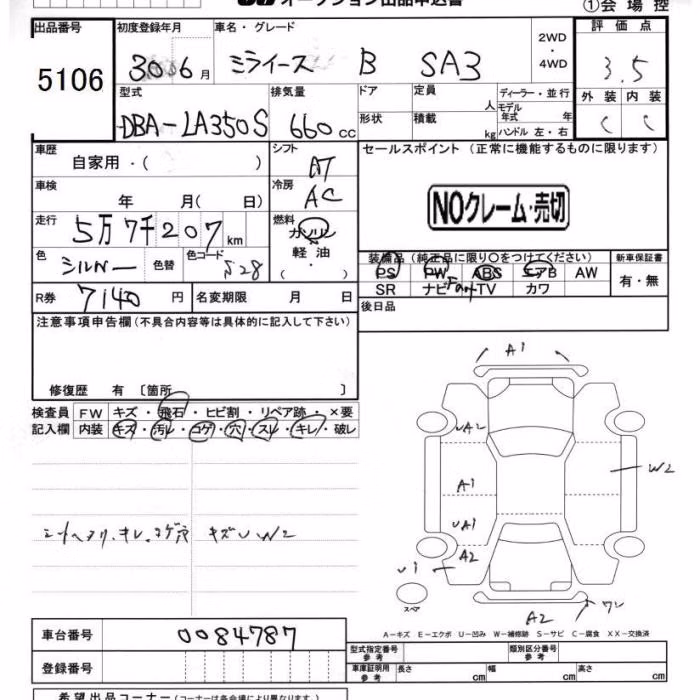 オークション出品申込書
①会場控
出品番号 初度登録年月 車名・グレード 2WD ・ 4WD 評価点
5106 30 06月 ミライース B SA3 3.5
型式 排気量 ドア 定員 人 ディーラー・並行 外装 内装
DBA-LA350S 660cc 形状 積載 kg モデル年式 年 ハンドル 左・右 C C
車歴 自家用・( ) シフト AT セールスポイント (正常に機能するものに限ります)
車検 年 月( 日) 冷房 AC
NOクレーム・売切
走行 5万7千207km 燃料 ガソリン
軽油
・( )
色 シルバー 色替 色コード S28
装備品 (純正品に限り○をつけてください) 新車保証書
PS PW ABS エアB AW 有・無
SR ナビ TV カワ
R券 7140円 名変期限 月 日 後日品
注意事項申告欄(不具合内容等は具体的に記入して下さい)
修復歴 有 〔箇所 〕
検査員 FW キズ・飛石・ヒビ割・リペア跡・×要
記入欄 内装 キズ・汚レ・コゲ・穴・スレ・キレ・破レ
A1
UA2
W2
A1
UA1
A2
U1
スペア
A2
A-キズ E-エクボ U-凹み W-補修跡 S-サビ C-腐食 XX-交換済
車台番号 0084787
型式指定番号 参考 類別区分番号 参考
登録番号 車庫証明用 参考 長さ cm 幅 cm 高さ cm
希望出品コーナー (コーナーは各会場により異なります。)